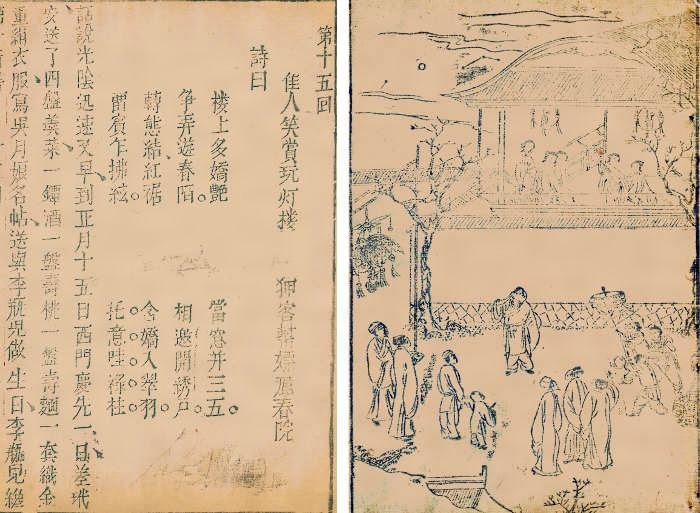 第十五回
佳人笑賞玩灯楼　狎客幇嫖麗春院
詩曰
楼上多嬌艷　當窓并三五。
爭弄遊春陌。相邀開綉户。
轉態結紅裾　含嬌入翠羽。
畱賓乍拂絃。托意時移柱
話說光陰迅速又早到正月十五日西門慶先一日差玳
安送了四盤羹菜一罈酒一盤壽桃一盤壽麵一套織金
重絹衣服寫吳月娘名帖送與李瓶兒做生日李瓶兒纔